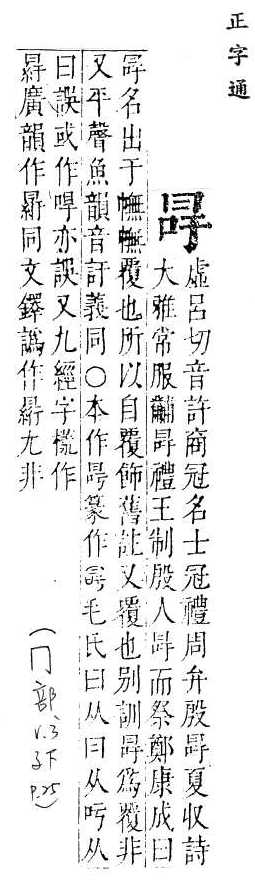 正字通
冔
虛呂切音許商冠名士冠禮周弁殷冔夏收詩
大雅常服黼冔禮王制殷人冔而祭鄭康成曰
冔名出于幠幠覆也所以自覆飾舊註又覆也別訓冔爲覆非
又平聲魚韻音訏義同○本作冔篆作毛氏曰从冃从吁从
曰誤或作哻亦誤又九經字㨾作
廣韻作同文鐸譌作尤非
(冂部、
V.3
子下
P.25)